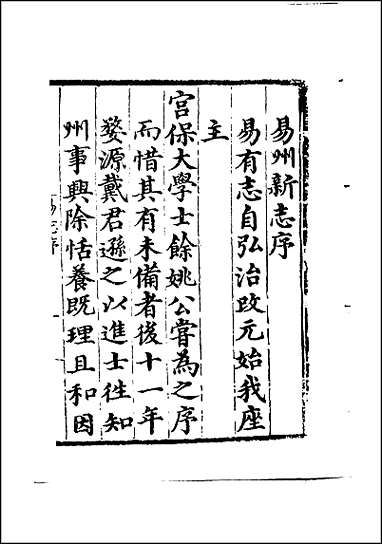 易州新志序
易有志自弘治改元始我座
主
宮保大學士餘姚公嘗為之序
而惜其有未備者後十一年
婺源戴君遜之以進士徃知
州事興除恬養既理且和因